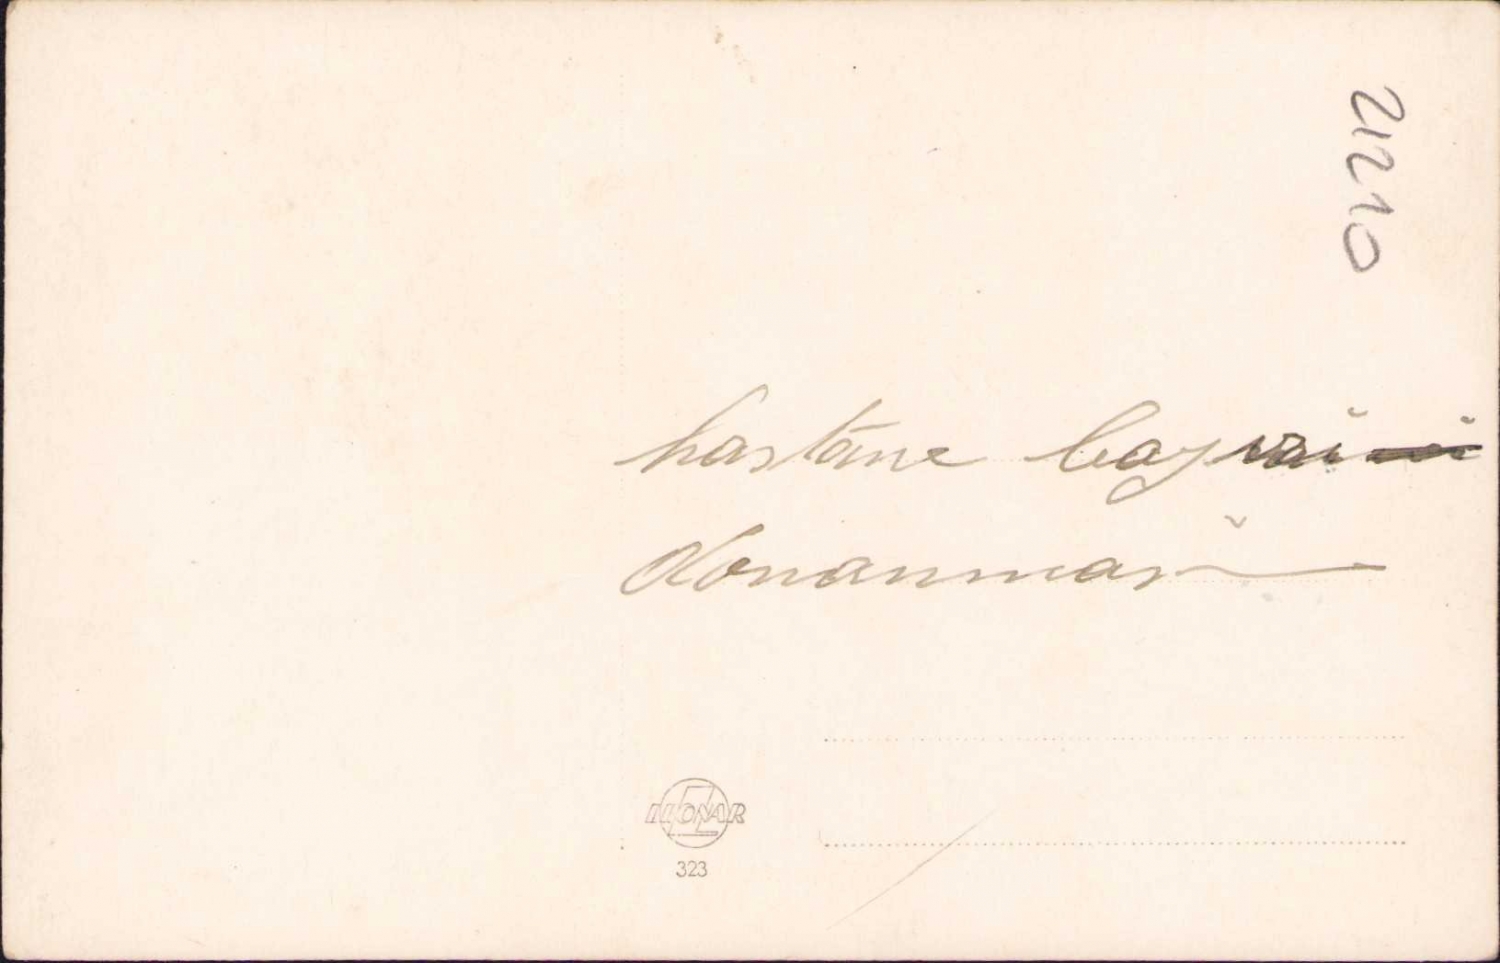 21210
hastane bay
donanması
LEONAR
323